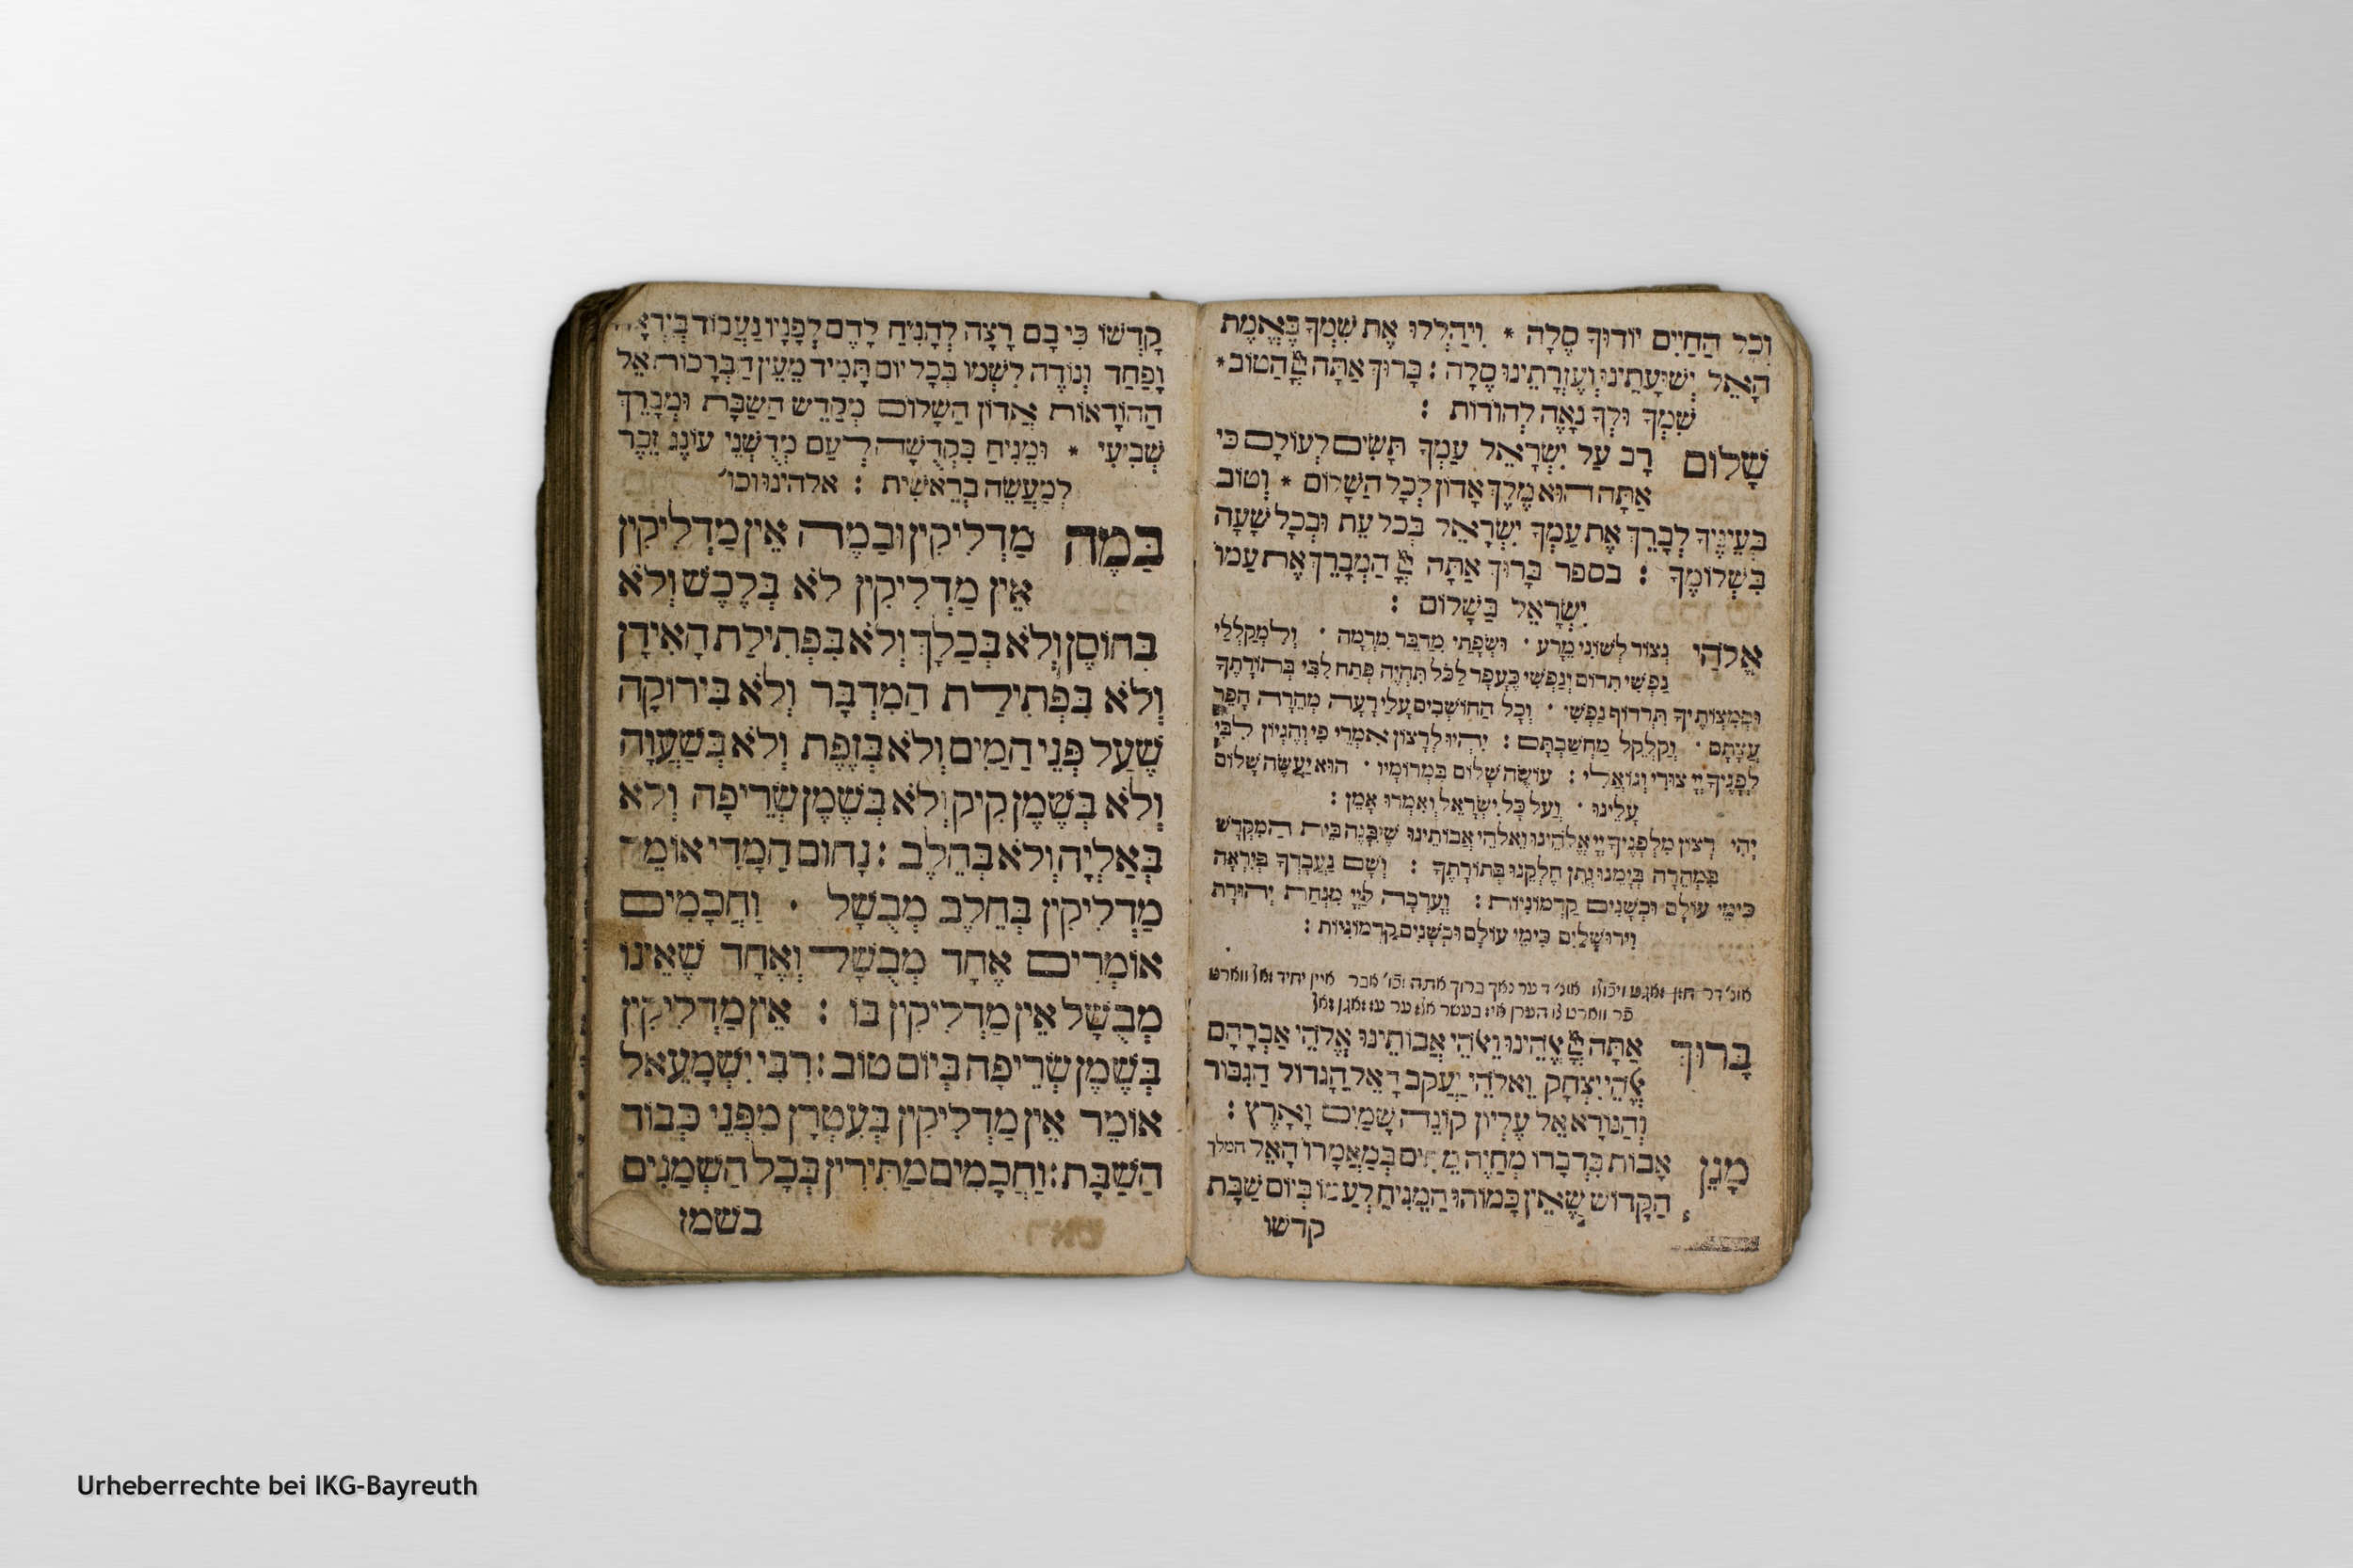 וְכֹל הַחַיִּים יוֹדוּךָ סֶלָה * וִיהַלְלוּ אֶת שִׁמְךָ בֶּאֱמֶת
הָאֵל יְשׁוּעָתֵינוּ וְעֶזְרָתֵינוּ סֶלָה : בָּרוּךְ אַתָּה יְיָ הַטוֹב *
שִׁמְךָ וּלְךָ נָאֶה לְהוֹדוֹת :
שָׁלוֹם רָב עַל יִשְׂרָאֵל עַמְּךָ תָּשִׂים לְעוֹלָם כִּי
אַתָּה הוּא מֶלֶךְ אָדוֹן לְכָל הַשָּׁלוֹם * וְטוֹב
בְּעֵינֶיךָ לְבָרֵךְ אֶת עַמְּךָ יִשְׂרָאֵל בְּכל עֵת וּבְכָל שָׁעָה
בִּשְׁלוֹמֶךָ : בספר בָּרוּךְ אַתָּה יְיָ הַמְבָרֵךְ אֶת עַמּוֹ
יִשְׂרָאֵל בַּשָׁלוֹם :
אֱלֹהַי נְצוֹר לְשׁוֹנִי מֵרָע · וּשְׂפָתַי מִדַּבֵּר מִרְמָה · וְלִמְקַלְלַי
נַפְשִׁי תִדּוֹם וְנַפְשִׁי כֶּעָפָר לַכֹּל תִּהְיֶה פְּתַח לִבִּי בְּתוֹרָתֶךָ
וּבְמִצְוֹתֶיךָ תִּרְדּוֹף נַפְשִׁי · וְכָל הַחוֹשְׁבִים עָלַי רָעָה מְהֵרָה הָפֵר
עֲצָתָם · וְקַלְקֵל מַחְשַׁבְתָּם : יִהְיוּ לְרָצוֹן אִמְרֵי פִי וְהֶגְיוֹן לִבִּי
לְפָנֶיךָ יְיָ צוּרִי וְגוֹאֲלִי : עוֹשֶׂה שָׁלוֹם בִּמְרוֹמָיו · הוּא יַעֲשֶׂה שָׁלוֹם
עָלֵינוּ · וְעַל כָּל יִשְׂרָאֵל וְאִמְרוּ אָמֵן :
יְהִי רָצוֹן מִלְּפָנֶיךָ יְיָ אֱלֹהֵינוּ וֵאלֹהֵי אֲבוֹתֵינוּ שֶׁיִּבָּנֶה בֵּית הַמִּקְדָּשׁ
בִּמְהֵרָה בְּיָמֵנוּ וְתֵן חֶלְקֵנוּ בְּתוֹרָתֶךָ : וְשָׁם נַעֲבָדְךָ בְּיִרְאָה
כִּימֵי עוֹלָם וּכְשָׁנִים קַדְמוֹנִיּוֹת : וְעָרְבָה לַיְיָ מִנְחַת יְהוּדָה
וִירוּשָׁלַיִם כִּימֵי עוֹלָם וּכְשָׁנִים קַדְמוֹנִיּוֹת :
אונ' דר חזן זאגט ויכולו אונ' דער נאך ברוך אתה וכו' אבר איין יחיד
בָּרוּךְ אַתָּה יְיָ אֱלֹהֵינוּ וֵאלֹהֵי אֲבוֹתֵינוּ אֱלֹהֵי אַבְרָהָם
אֱלֹהֵי יִצְחָק וֵאלֹהֵי יַעֲקֹב הָאֵל הַגָּדוֹל הַגִּבּוֹר
וְהַנּוֹרָא אֵל עֶלְיוֹן קוֹנֵה שָׁמַיִם וָאָרֶץ :
מָגֵן אָבוֹת בִּדְבָרוֹ מְחַיֵּה מֵתִים בְּמַאֲמָרוֹ הָאֵל המלך
הַקָּדוֹשׁ שֶׁאֵין כָּמוֹהוּ הַמֵּנִיחַ לְעַמּוֹ בְּיוֹם שַׁבָּת
קדשו
קָדְשׁוֹ כִּי בָם רָצָה לְהָנִיחַ לָהֶם לְפָנָיו נַעֲבוֹד בְּיִרְאָה
וָפַחַד וְנוֹדֶה לִשְׁמוֹ בְּכָל יוֹם תָּמִיד מֵעֵין הַבְּרָכוֹת אֵל
הַהוֹדָאוֹת אֲדוֹן הַשָּׁלוֹם מְקַדֵּשׁ הַשַּׁבָּת וּמְבָרֵךְ
שְׁבִיעִי * וּמֵנִיחַ בִּקְדֻשָּׁה לְעַם מְדֻשְּׁנֵי עוֹנֶג זֵכֶר
לְמַעֲשֵׂה בְרֵאשִׁית : אלהינו וכו'
בַּמֶּה מַדְלִיקִין וּבַמֶּה אֵין מַדְלִיקִין
אֵין מַדְלִיקִין לֹא בְּלֶכֶשׁ וְלֹא
בְּחוֹסֶן וְלֹא בְּכַלָּךְ וְלֹא בִּפְתִילַת הָאִידָן
וְלֹא בִּפְתִילַת הַמִּדְבָּר וְלֹא בִּירוֹקָה
שֶׁעַל פְּנֵי הַמַּיִם וְלֹא בְּזֶפֶת וְלֹא בְּשַׁעֲוָה
וְלֹא בְּשֶׁמֶן קִיק וְלֹא בְּשֶׁמֶן שְׂרֵיפָה וְלֹא
בְּאַלְיָה וְלֹא בְּחֵלֶב : נָחוּם הַמָּדִי אוֹמֵר
מַדְלִיקִין בְּחֵלֶב מְבֻשָּׁל · וַחֲכָמִים
אוֹמְרִים אֶחָד מְבֻשָּׁל וְאֶחָד שֶׁאֵינוֹ
מְבֻשָּׁל אֵין מַדְלִיקִין בּוֹ : אֵין מַדְלִיקִין
בְּשֶׁמֶן שְׂרֵיפָה בְּיוֹם טוֹב : רִבִּי יִשְׁמָעֵאל
אוֹמֵר אֵין מַדְלִיקִין בְּעִטְרָן מִפְּנֵי כְּבוֹד
הַשַּׁבָּת : וַחֲכָמִים מַתִּירִין בְּכָל הַשְּׁמָנִים
בשמן
Urheberrechte bei IKG-Bayreuth